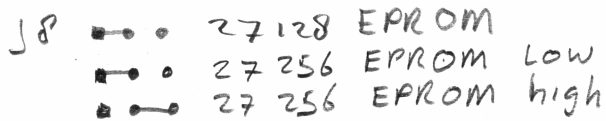 J8 27128 EPROM
27 256 EPROM LOW
27 256 EPROM high